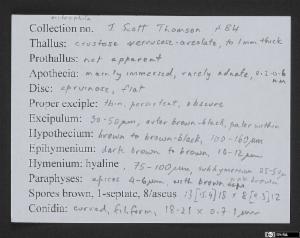 Collection no. J. Scott Thomson
Thallus: crustose verrucose-areolate, to 1mm thick
Prothallus: not apparent
Apothecia: mainly immersed, rarely adnate, 0.2-0.6 mm
Disc: epruinose, flat
Proper exciple: thin, persistent, obscure
Excipulum: 30-50µm, outer brown-black, paler within
Hypothecium: brown to brown-black, 100-160µm
Epihymenium: dark brown to brown, 10-12µm
Hymenium: hyaline, 75-100µm, subhymenium
Paraphyses: apices 4-6µm, with brown caps
Spores brown, 1-septate, 8/ascus
Conidia: curved, filiform, 18-21 x 0.7